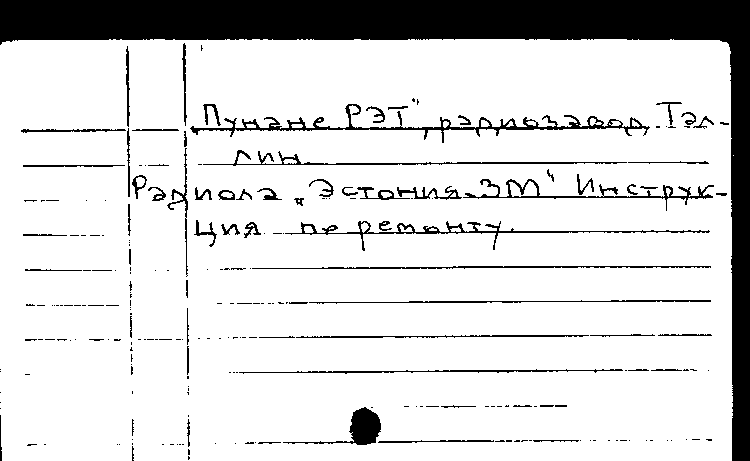 „Пунане РЭТ", радиозавод, Тал-
лин.
Радиола „Эстония-3М" Инструк-
ция по ремонту.